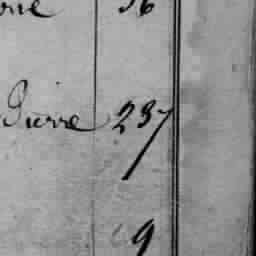 36
Pierre 237
9